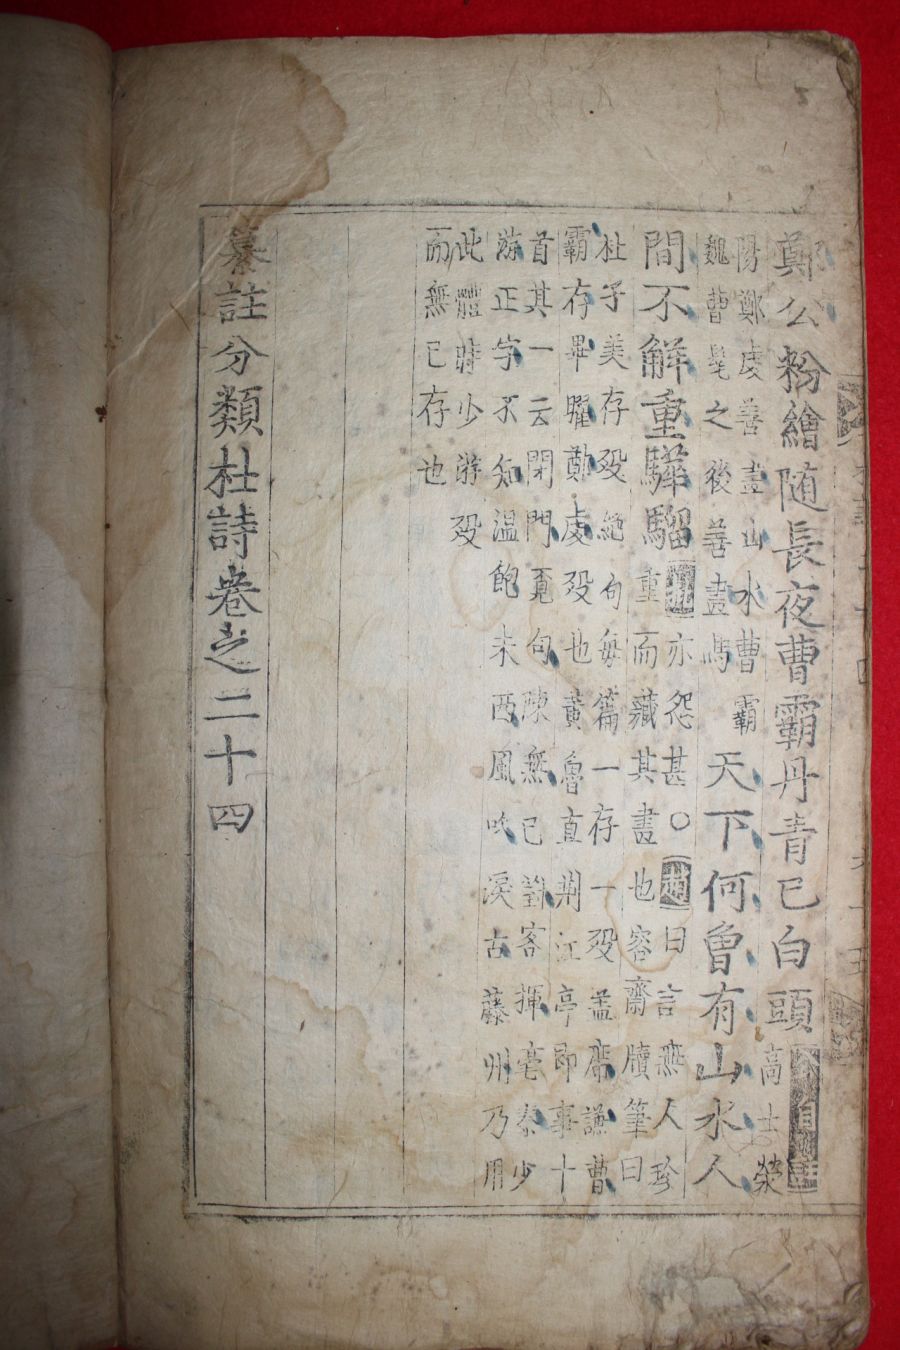 鄭公粉繪随長夜曹霸丹青已白頭
高士滎
陽鄭虔善畫山水曹霸
魏曹髦之後善畫馬
天下何曾有山水人
間不解重驊騮
亦怨甚○趙曰言無人珍
重而藏其畫也容齋牘筆曰
杜子美存殁絶句每篇一存一殁盖席謙曹
霸存畢曜鄭虔殁也黄魯直荆江亭即事十
首其一云閉門覔句陳無已對客揮毫秦少
游正字不知温飽未西風吹淚古藤州乃用
此體時少游殁
而無已存也
纂註分類杜詩卷之二十四